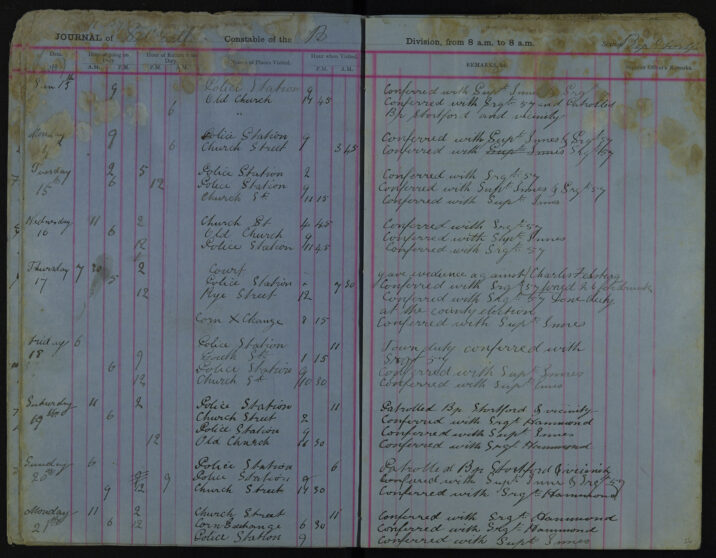 JOURNAL of Constable of the B Division, from 8 a.m. to 8 a.m.
Date. Hour of going on Duty. Hour of Return from Duty. Names of Places Visited. Hour when Visited. REMARKS, &c.
A.M. P.M. A.M. P.M. P.M. A.M.
9 Police Station 9 Conferred with Supt Innes & Srgt
6 Old Church 14 45 Conferred with Srgt 57 and Patrolled
" Bp Stortford and vicinity
Monday 9 Police Station 9 Conferred with Supt Innes & Srgt 57
6 Church Street 3 45 Conferred with Supt Innes Srgt 57
Tuesday 2 5 Police Station 2 Conferred with Srgt 57
15th 6 12 Police Station 9 Conferred with Supt Innes & Srgt 57
Church St 11 15 Conferred with Supt Innes
Wednesday 11 2 Church St 4 45 Conferred with Srgt 57
16 6 Old Church Conferred with Supt Innes
12 Police Station 11 45 Conferred with Srgt 57
Thursday 7 30 2 Court gave evidence against Charles
17 5 Police Station 7 30 Conferred with Srgt 57
12 Rye Street 12 Conferred with Srgt 57 Done duty
at the county election
Corn X Change 8 15 Conferred with Supt Innes
Friday 6 Police Station 11 Town duty conferred with
18 9 South St 1 15 Srgt 57
6 Police Station 9 Conferred with Supt Innes
12 Church St 10 30 Conferred with Supt Innes
Saturday 11 2 Police Station 11 Patrolled Bp Stortford & vicinity
19th 6 Church Street 2 Conferred with Srgt Hammond
Police Station 9 Conferred with Supt Innes
12 Old Church 11 30 Conferred with Srgt Hammond
Sunday 6 Police Station 6 Patrolled Bp Stortford & vicinity
20th 9 Police Station 9 Conferred with Supt Innes & Srgt 57
9 12 Church Street 14 30 Conferred with Srgt Hammond
Monday 11 2 Church Street 11 Conferred with Srgt Hammond
21st 6 12 Corn Exchange 6 30 Conferred with Srgt Hammond
Police Station 9 Conferred with Supt Innes